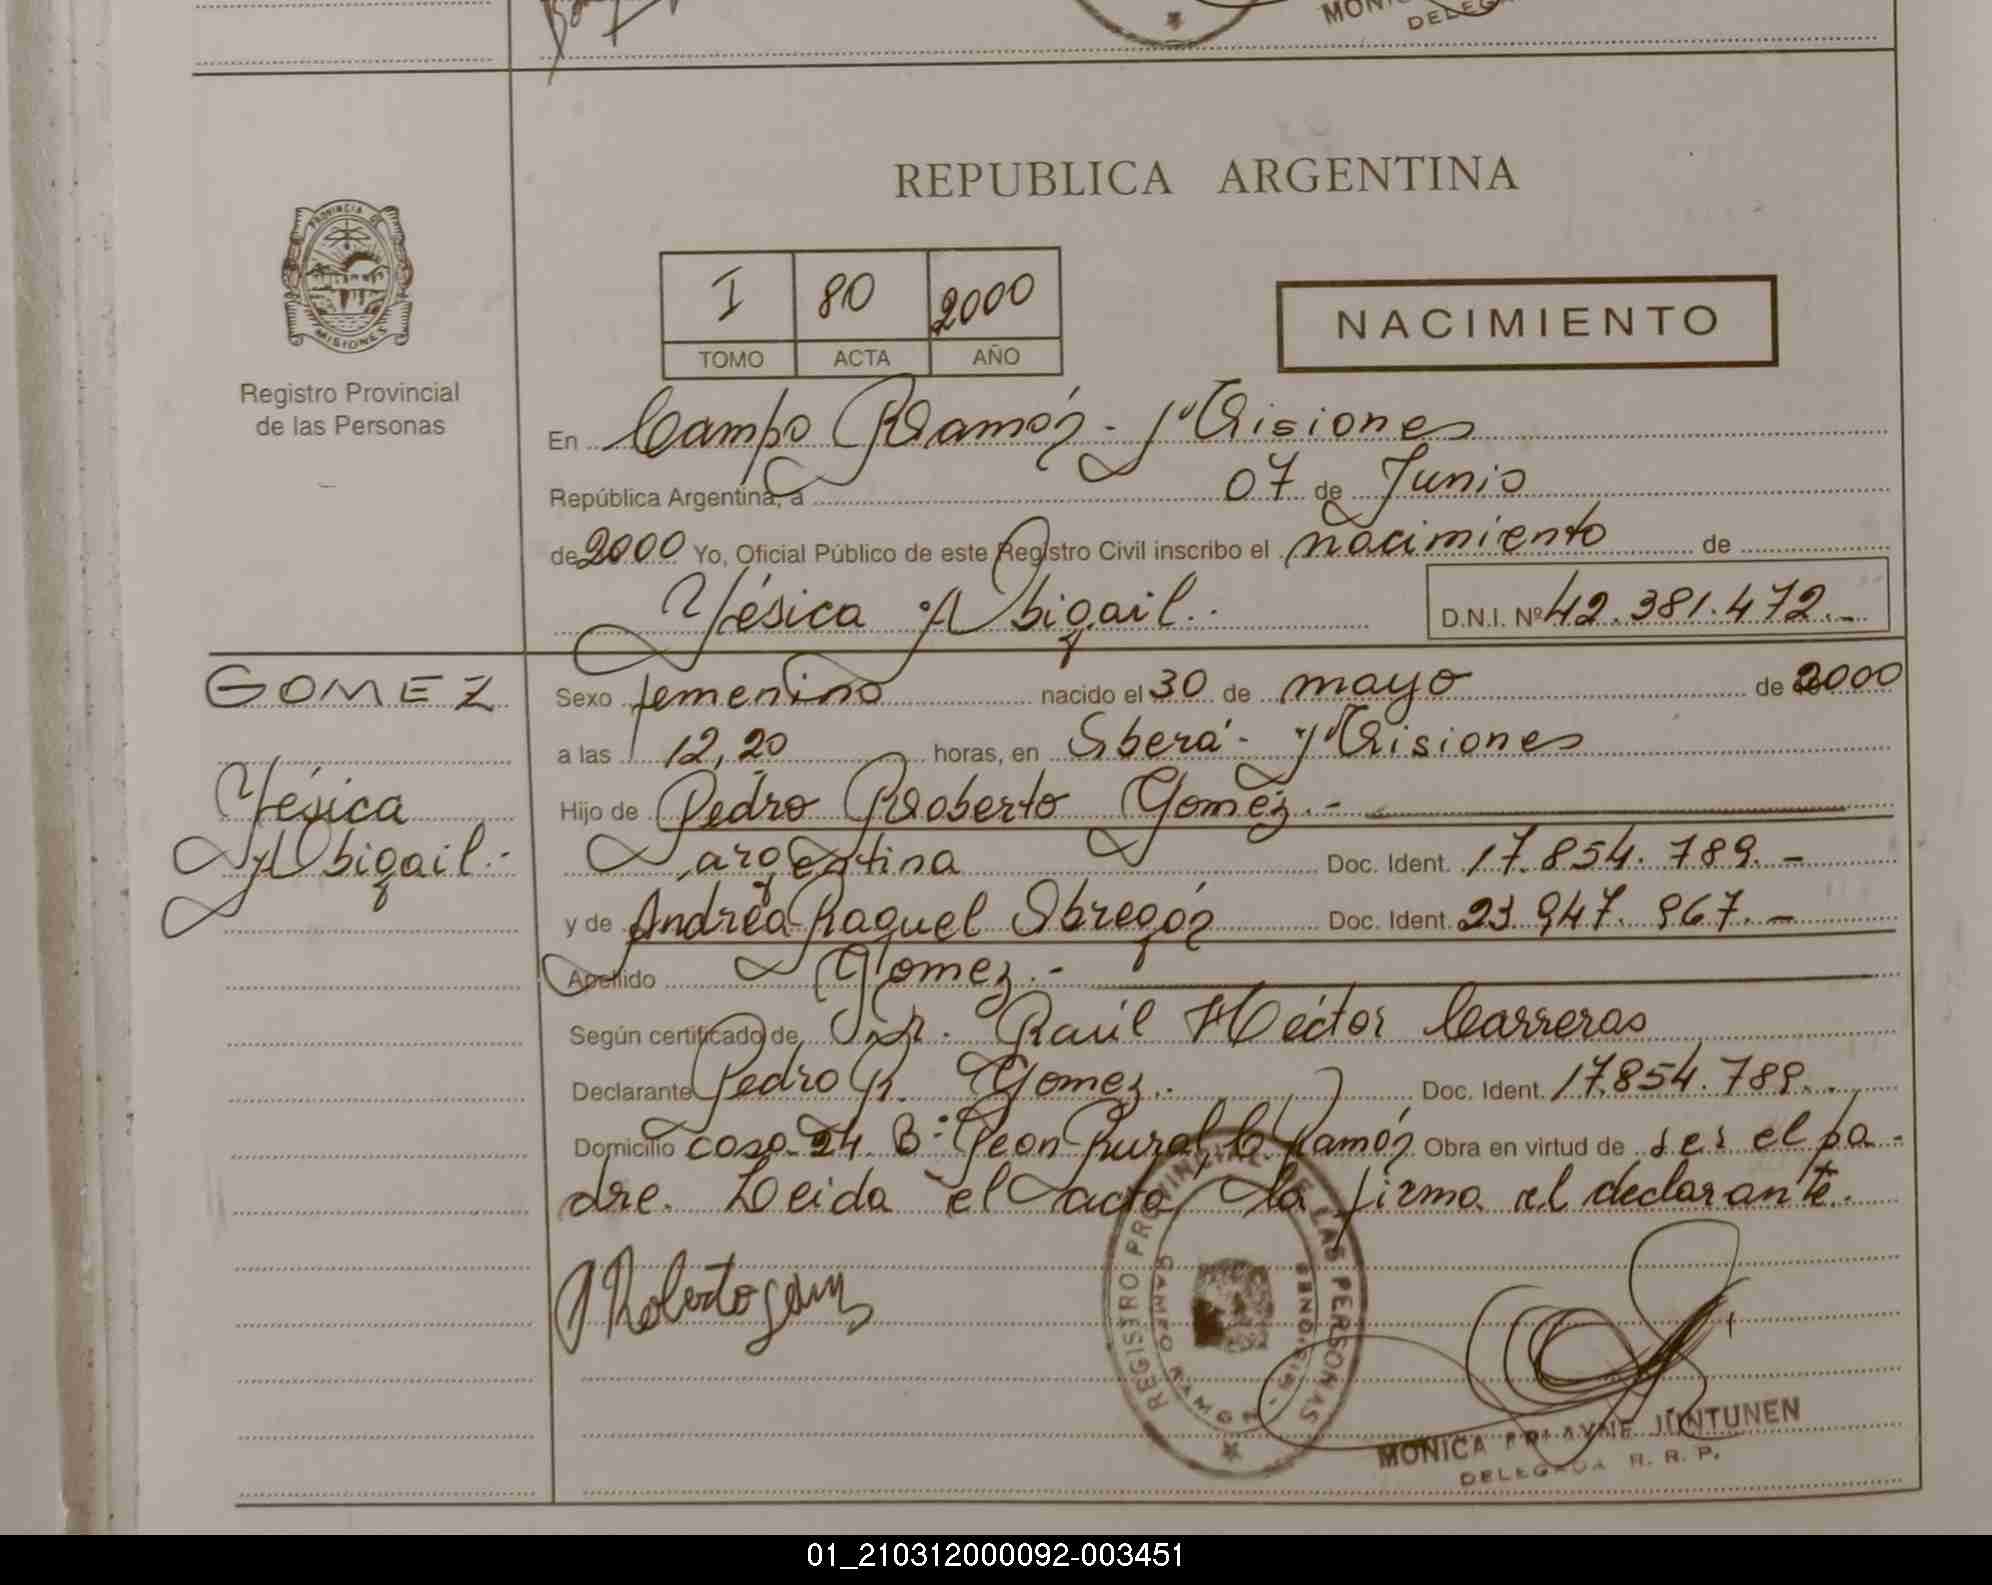 MONI
DELEG
REPUBLICA ARGENTINA
PROVINCIA DE
MISIONES
Registro Provincial
de las Personas
I 80 2000
TOMO ACTA AÑO
NACIMIENTO
En Campo Ramón - Misiones
República Argentina, a 07 de Junio
de 2000 Yo, Oficial Público de este Registro Civil inscribo el nacimiento de
Yésica Abigail.
D.N.I. Nº 42.381.472.-
GOMEZ
Yésica
Abigail.-
Sexo femenino nacido el 30 de mayo de 2000
a las 12,20 horas, en Oberá - Misiones
Hijo de Pedro Roberto Gomez.-
argentina Doc. Ident. 17.854.789.-
y de Andrea Raquel Obregón Doc. Ident. 23.947.967.-
Apellido Gomez.-
Según certificado de Dr. Raúl Héctor Carreras
Declarante Pedro R. Gomez. Doc. Ident. 17.854.789.
Domicilio casa 24 Bº Peon Rural, C. Ramón Obra en virtud de ser el pa-
dre. Leida el acta, la firma el declarante.
REGISTRO PROVINCIAL DE LAS PERSONAS
CAMPO RAMON - MISIONES
MONICA JUNTUNEN
DELEGADA R. R. P.
01_210312000092-003451